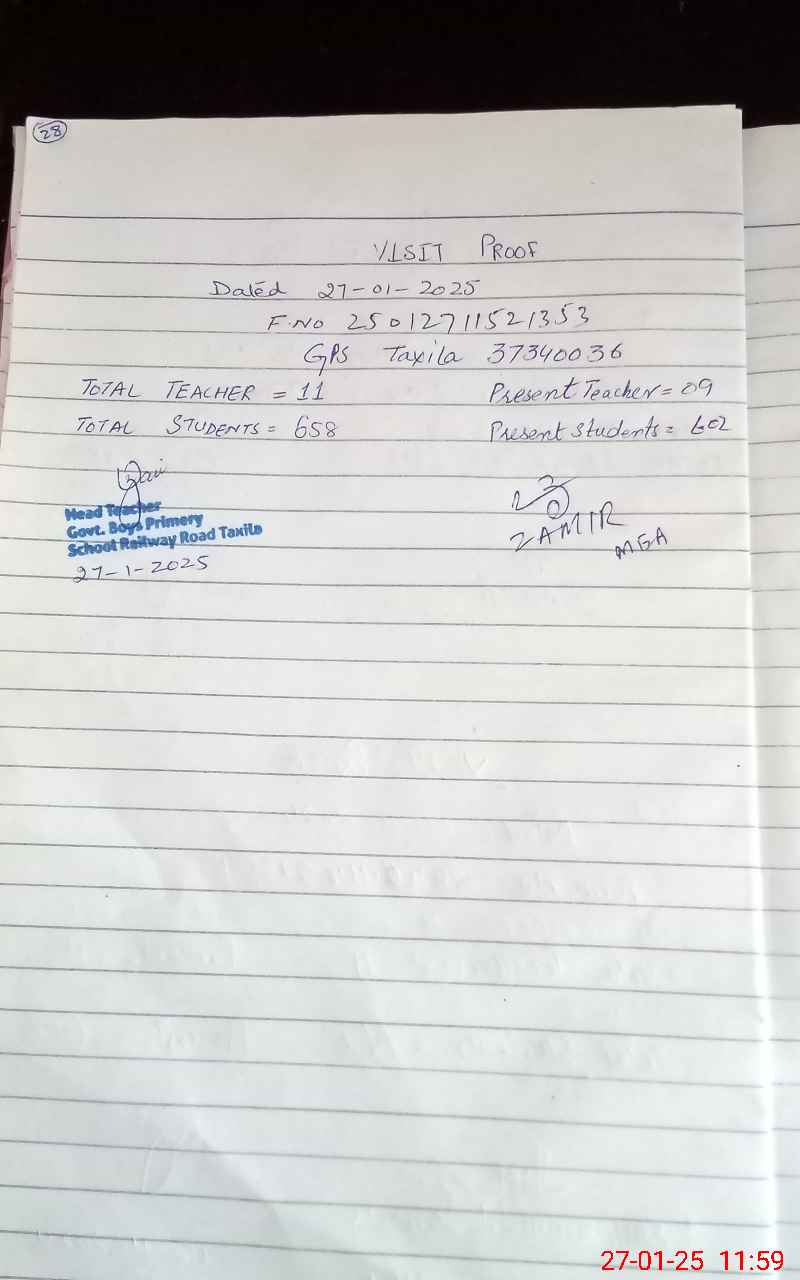 28
VISIT PROOF
Dated 27-01-2025
F.NO 25012711521353
GPS Taxila 37340036
TOTAL TEACHER = 11 Present Teacher = 09
TOTAL STUDENTS = 658 Present Students = 602
Head Teacher
Govt. Boys Primery
School Railway Road Taxila
27-1-2025
ZAMIR
MEA
27-01-25 11:59